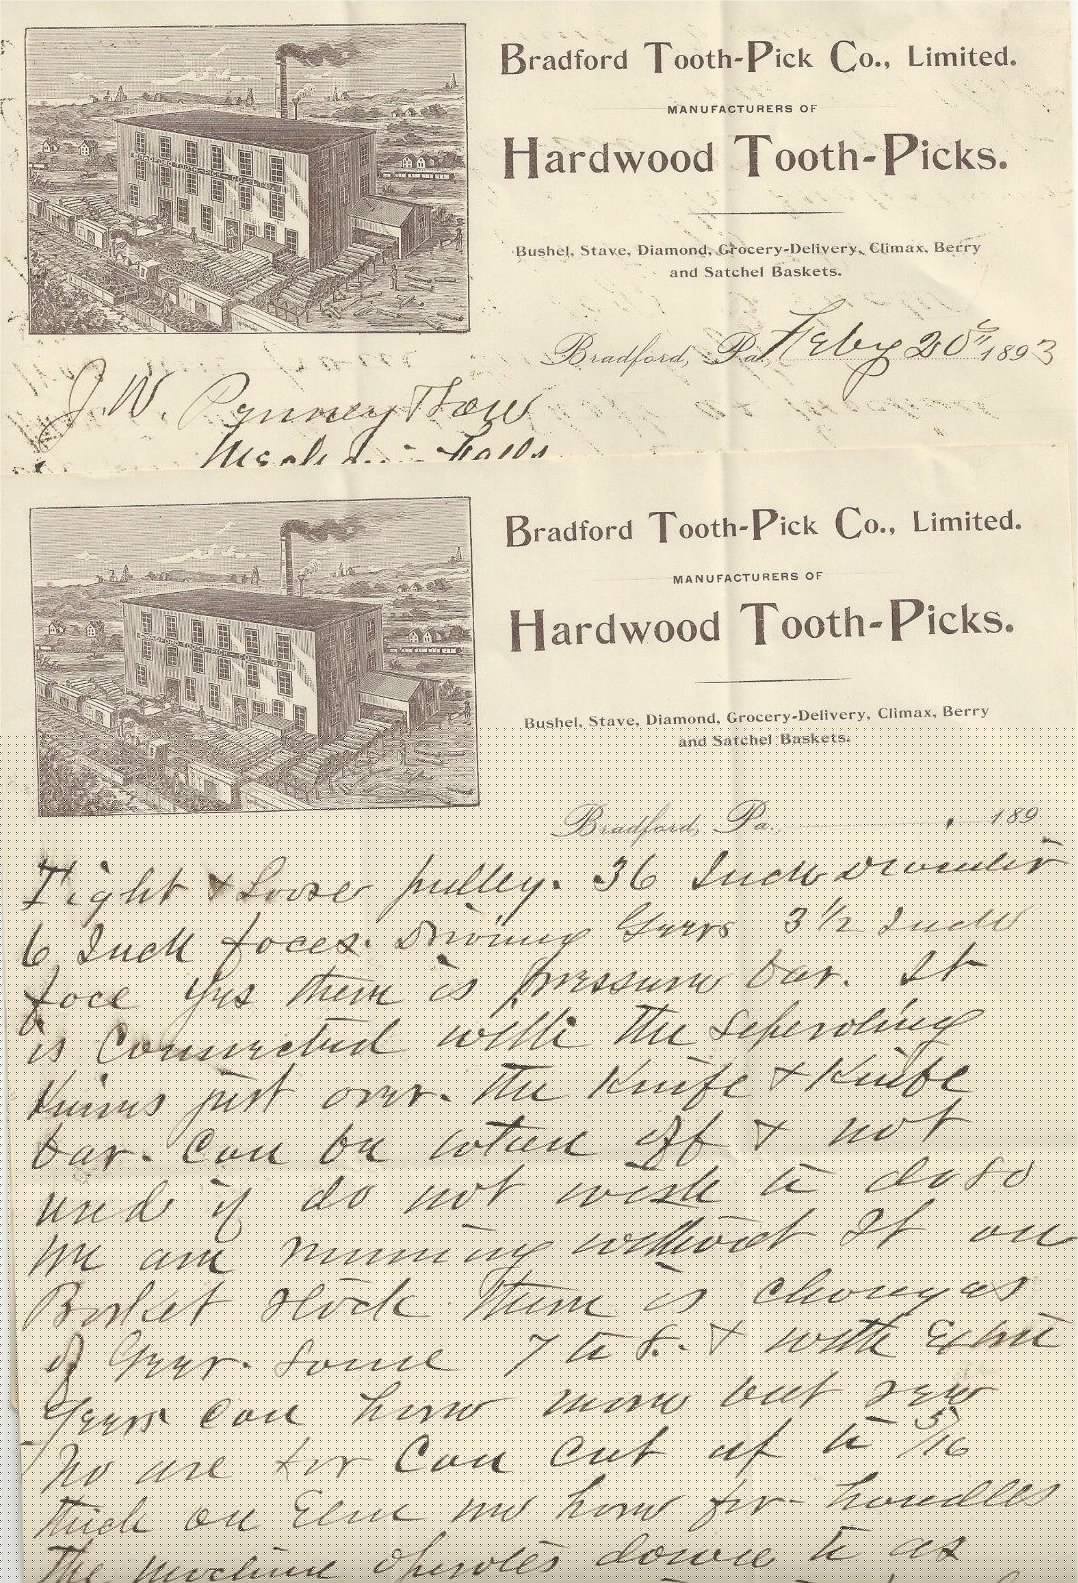 Bradford Tooth-Pick Co., Limited.
MANUFACTURERS OF
Hardwood Tooth-Picks.
Bushel, Stave, Diamond, Grocery-Delivery, Climax, Berry
and Satchel Baskets.
Bradford, Pa. Feby 20th 1893
J. W. Penney
Mechanic Falls
Bradford Tooth-Pick Co., Limited.
MANUFACTURERS OF
Hardwood Tooth-Picks.
Bushel, Stave, Diamond, Grocery-Delivery, Climax, Berry
and Satchel Baskets.
Bradford, Pa. 189
Tight & Loose pulley. 36 Inch Diameter
6 Inch faces. Driving Gears 3 1/2 Inch
face Yes there is pressure bar. It
is connected with the Seperating
Knives just over. the Knife & Knife
bar. Can be taken off & not
used if do not wish to do so
We are running without It on
Basket stock. There is changes
of Gear. some 7 to 8. & with Extra
Gears can have more but see
no use for Can cut up to 5/16
thick on Elm we have for handles
The machine operates down to as